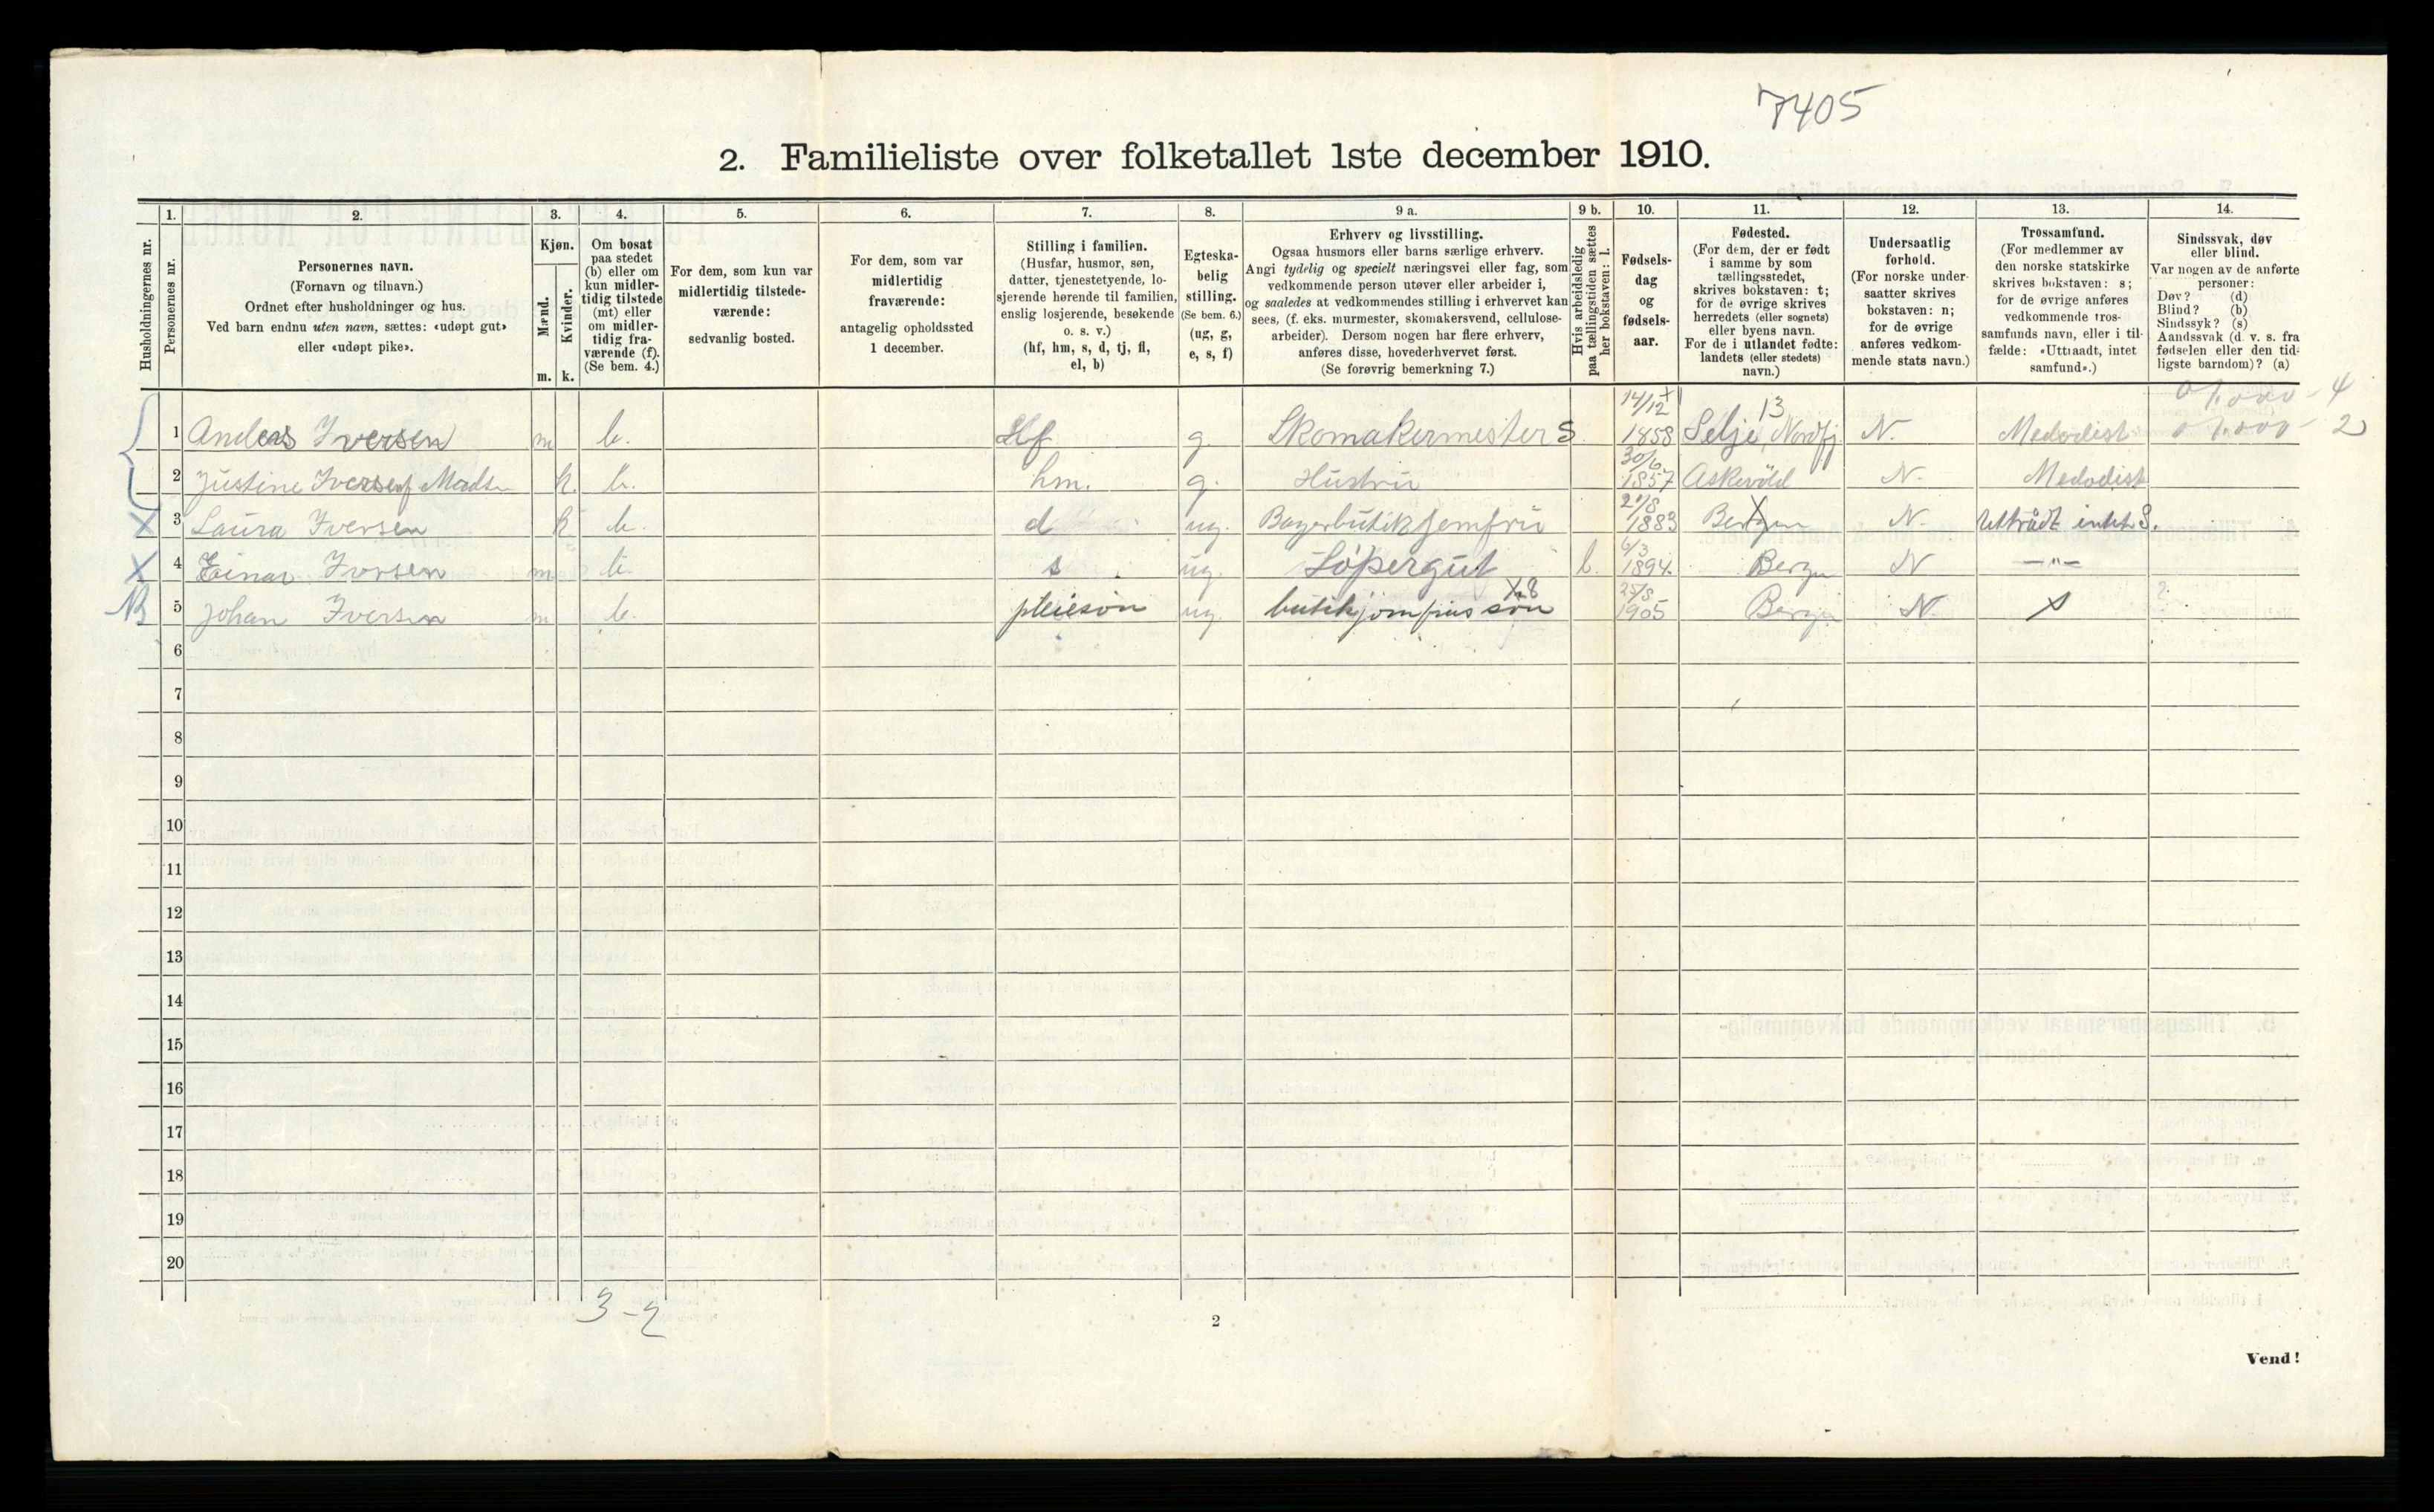 7405
2. Familieliste over folketallet 1ste december 1910.
1. 2. 3. 4. 5. 6. 7. 8. 9 a. 9 b. 10. 11. 12. 13. 14.
Husholdningernes nr.
Personernes nr.
Personernes navn.
(Fornavn og tilnavn.)
Ordnet efter husholdninger og hus.
Ved barn endnu uten navn, sættes: «udøpt gut»
eller «udøpt pike».
Kjøn.
Mænd.
Kvinder.
m. k.
Om bosat
paa stedet
(b) eller om
kun midler-
tidig tilstede
(mt) eller
om midler-
tidig fra-
værende (f).
(Se bem. 4.)
For dem, som kun var
midlertidig tilstede-
værende:
sedvanlig bosted.
For dem, som var
midlertidig
fraværende:
antagelig opholdssted
1 december.
Stilling i familien.
(Husfar, husmor, søn,
datter, tjenestetyende, lo-
sjerende hørende til familien,
enslig losjerende, besøkende
o. s. v.)
(hf, hm, s, d, tj, fl,
el, b)
Egteska-
belig
stilling.
(Se bem. 6.)
(ug, g,
e, s, f)
Erhverv og livsstilling.
Ogsaa husmors eller barns særlige erhverv.
Angi tydelig og specielt næringsvei eller fag, som
vedkommende person utøver eller arbeider i,
og saaledes at vedkommendes stilling i erhvervet kan
sees, (f. eks. murmester, skomakersvend, cellulose-
arbeider). Dersom nogen har flere erhverv,
anføres disse, hovederhvervet først.
(Se forøvrig bemerkning 7.)
Hvis arbeidsledig
paa tællingstiden sættes
her bokstaven: l.
Fødsels-
dag
og
fødsels-
aar.
Fødested.
(For dem, der er født
i samme by som
tællingsstedet,
skrives bokstaven: t;
for de øvrige skrives
herredets (eller sognets)
eller byens navn.
For de i utlandet fødte:
landets (eller stedets)
navn.)
Undersaatlig
forhold.
(For norske under-
saatter skrives
bokstaven: n;
for de øvrige
anføres vedkom-
mende stats navn.)
Trossamfund.
(For medlemmer av
den norske statskirke
skrives bokstaven: s;
for de øvrige anføres
vedkommende tros-
samfunds navn, eller i til-
fælde: «Uttraadt, intet
samfund».)
Sindssvak, døv
eller blind.
Var nogen av de anførte
personer:
Døv? (d)
Blind? (b)
Sindssyk? (s)
Aandssvak (d. v. s. fra
fødselen eller den tid-
ligste barndom)? (a)
1 Anders Iversen m b. Hf g. Skomakermester S 14/12 1858 13 Selje, Nordfj. N. Medodist
2 Justine Iversen f Mads k. b. hm. g. Hustru 30/6 1857 Askevold N. Medodist
X 3 Laura Iversen k. b. d ug. Bagerbutikjomfru 21/8 1883 Bergen N. Uttrådt intet S.
X 4 Einar Iversen m b. s ug. Löpergut l. 6/3 1894. Bergen N —"—
5 Johan Iversen m b. pleiesön ug. butikjomfrus sön X8 25/8 1905 Bergen N. ?
6
7
8
9
10
11
12
13
14
15
16
17
18
19
20
3 - 2
2
Vend!